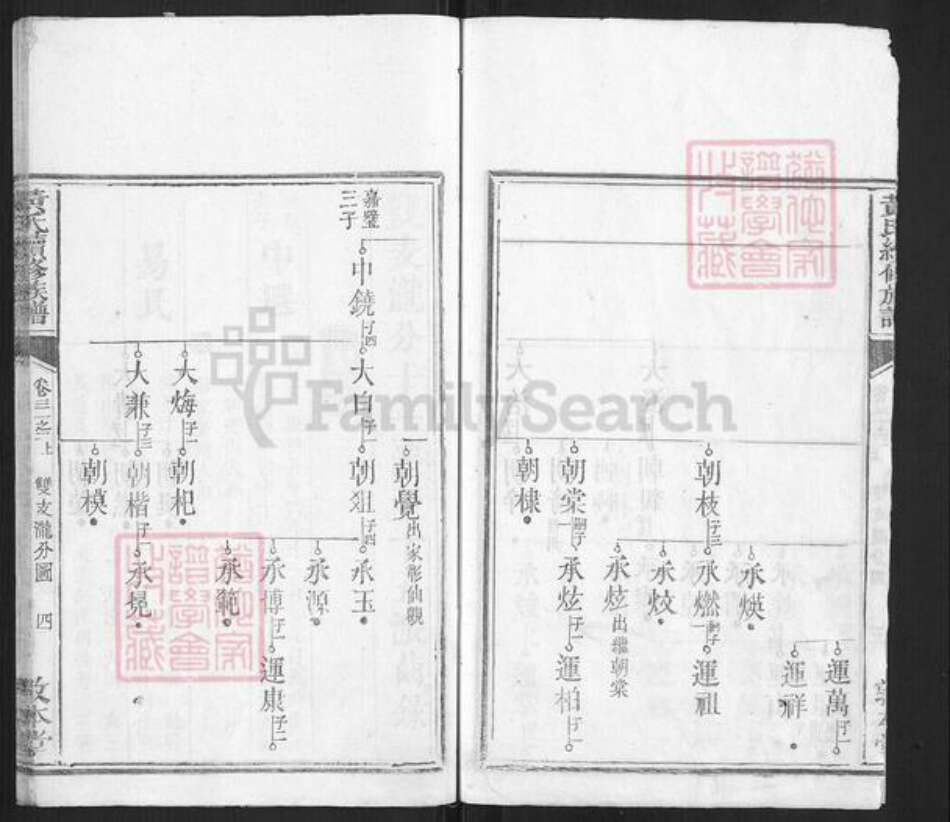 黃氏續修族譜
運萬 子一
運祥
承煐
朝枝 子三
承燃 嗣子一
運祖
承炆
承炫 出繼朝棠
朝棠 嗣子
承炫 子一
運柏 子一
朝棣
嘉璧
三子
中鐃 子四
大白 子一
朝狙 子四
承玉
朝覺 出家彰仙觀
承源
承博 子一
運康 子二
承範
大㷯 子一
朝杞
大兼 子三
朝楷 子一
承晃
朝模
黃氏續修族譜
卷三之上 雙支瀧分圖 四
敦本堂
FamilySearch
譜學會
收藏